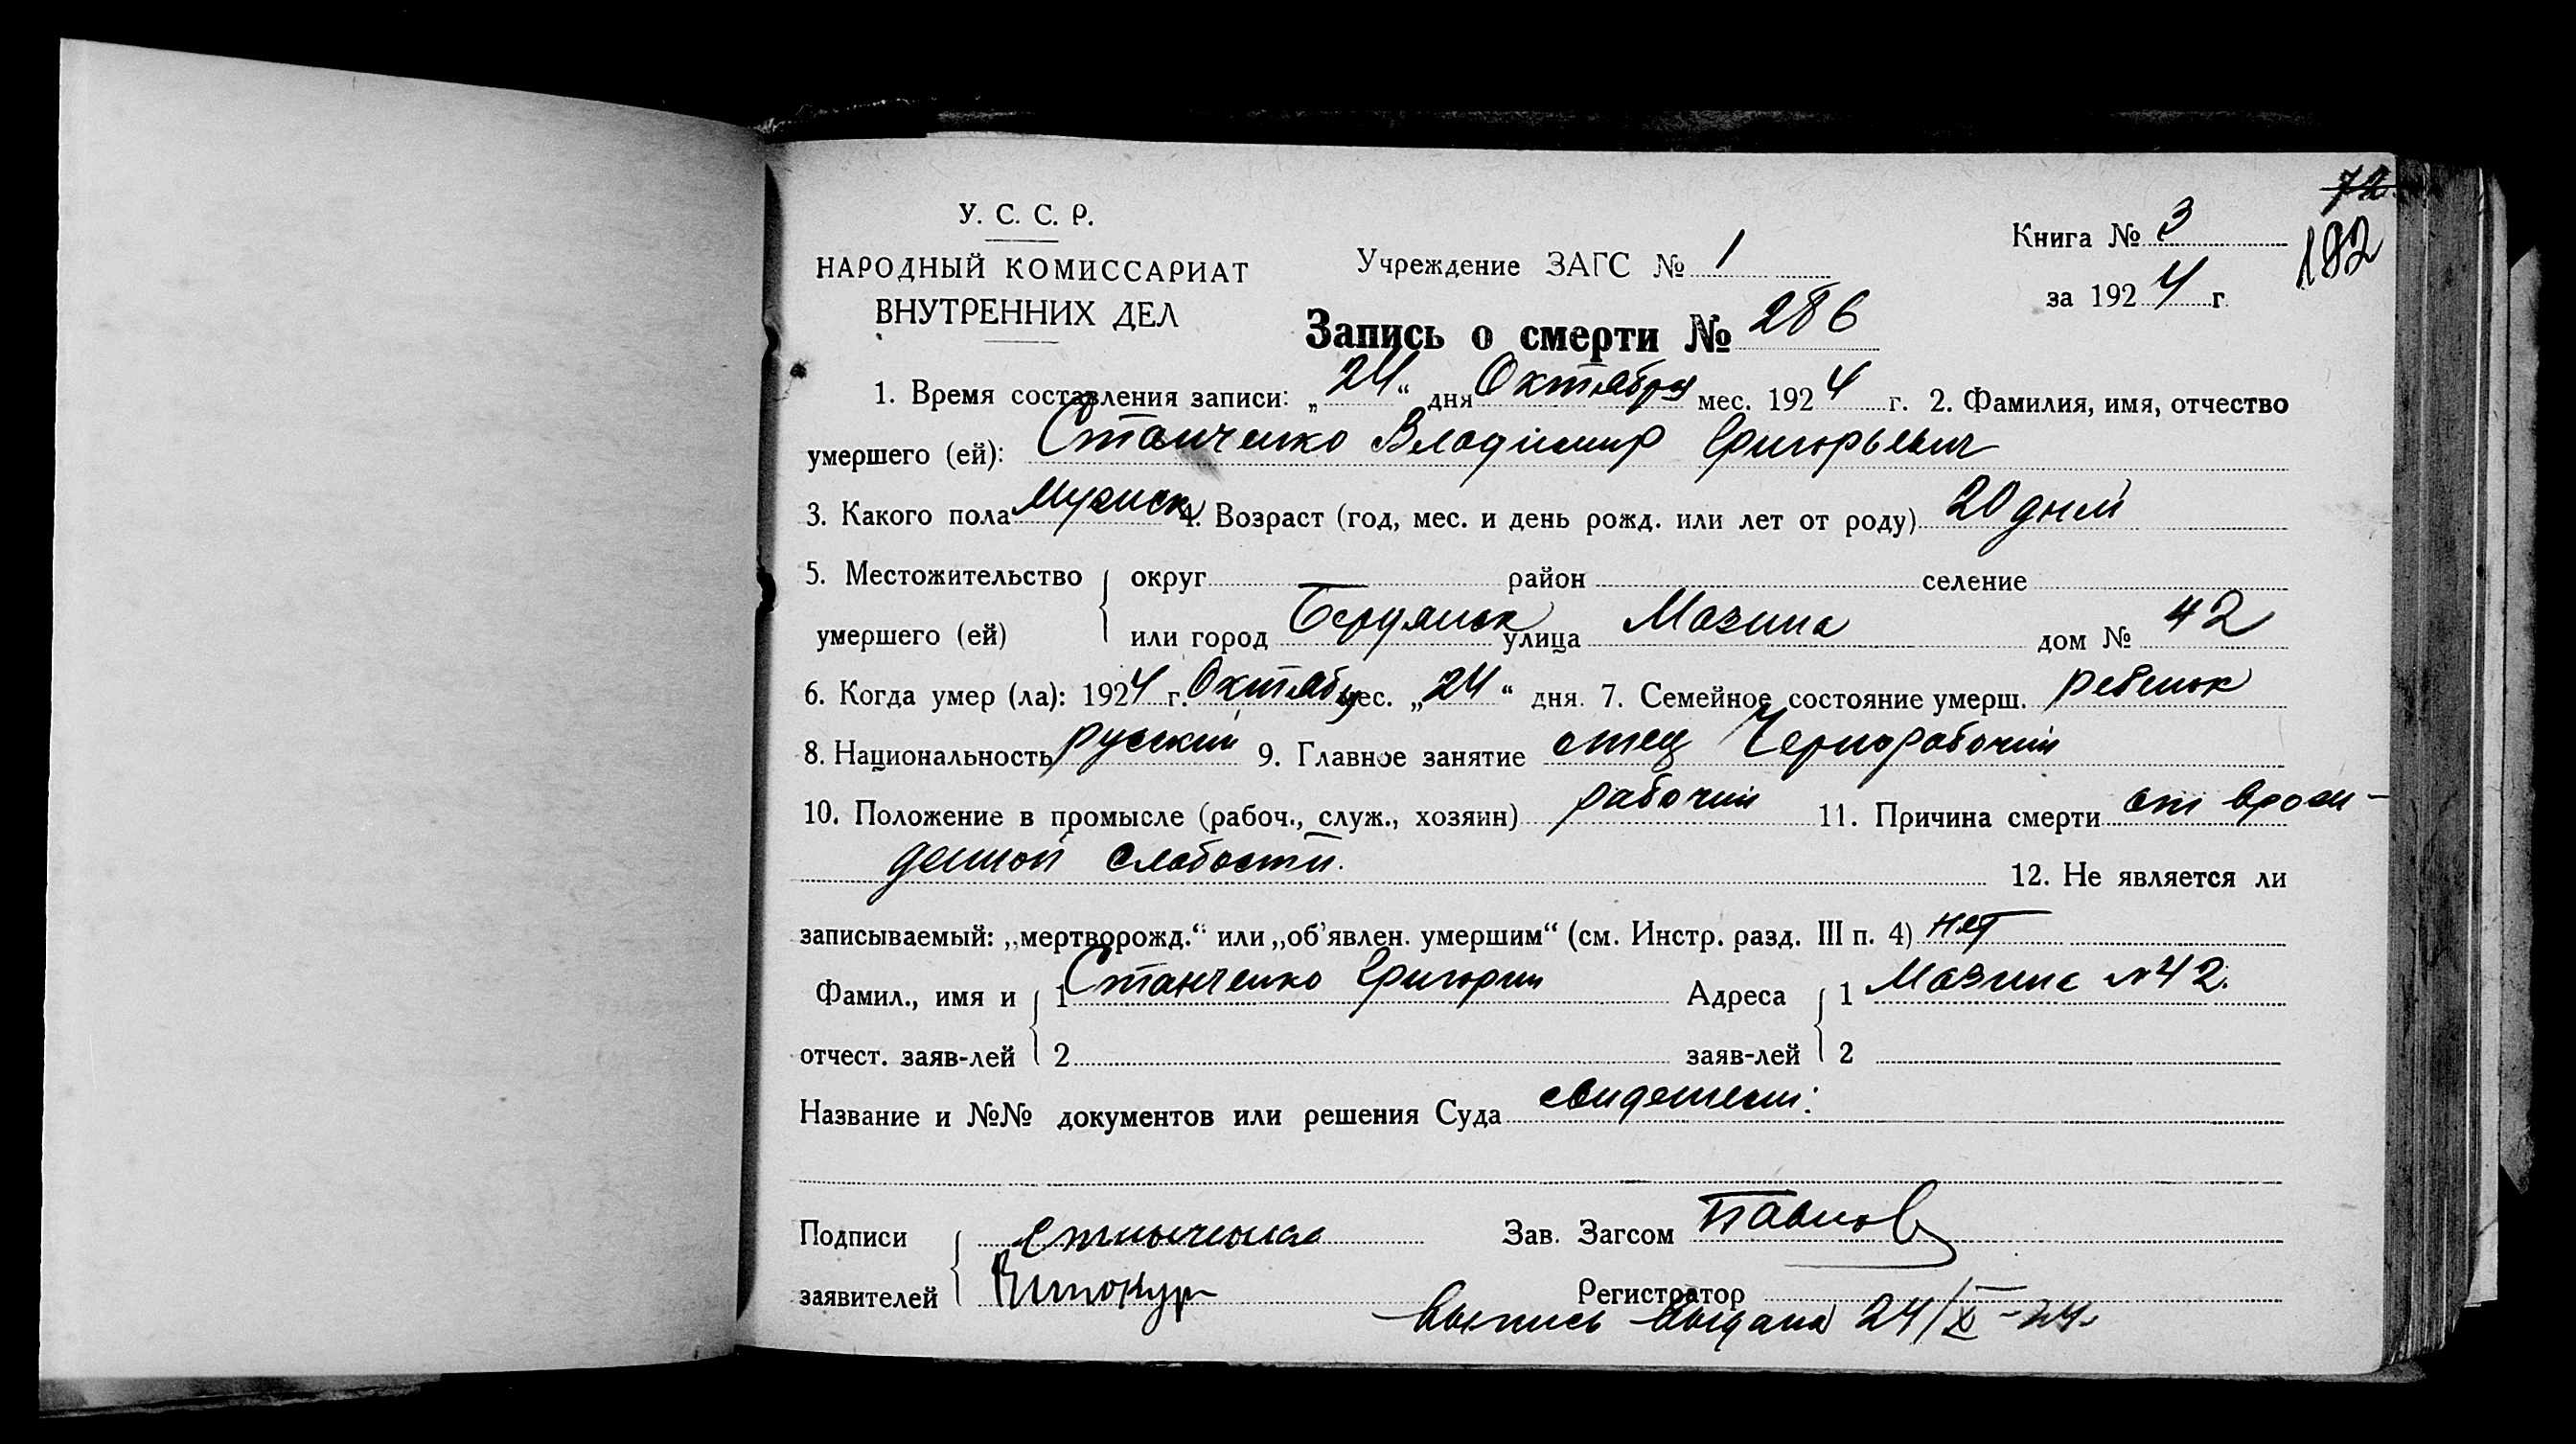 72
192
У. С. С. Р.
НАРОДНЫЙ КОМИССАРИАТ
ВНУТРЕННИХ ДЕЛ
Учреждение ЗАГС № 1
Книга № 3
за 1924 г.
Запись о смерти № 286
1. Время составления записи: „24“ дня Октября мес. 1924 г. 2. Фамилия, имя, отчество
умершего (ей): Станченко Владимир Григорьевич
3. Какого пола мужск 4. Возраст (год, мес. и день рожд. или лет от роду) 20 дней
5. Местожительство округ район селение
умершего (ей) или город Бердянск улица Мазина дом № 42
6. Когда умер (ла): 1924 г. Октября мес. „24“ дня. 7. Семейное состояние умерш. ребенок
8. Национальность русский 9. Главное занятие отец Чернорабочий
10. Положение в промысле (рабоч., служ., хозяин) рабочий 11. Причина смерти от врож-
денной слабости. 12. Не является ли
записываемый: „мертворожд.“ или „об’явлен. умершим“ (см. Инстр. разд. III п. 4) нет
Фамил., имя и 1 Станченко Григорий Адреса 1 Мазина № 42.
отчест. заяв-лей 2 заяв-лей 2
Название и №№ документов или решения Суда свидетели:
Подписи Зав. Загсом Павлов
заявителей Винокур Регистратор
Выпись выдана 24/X-24.